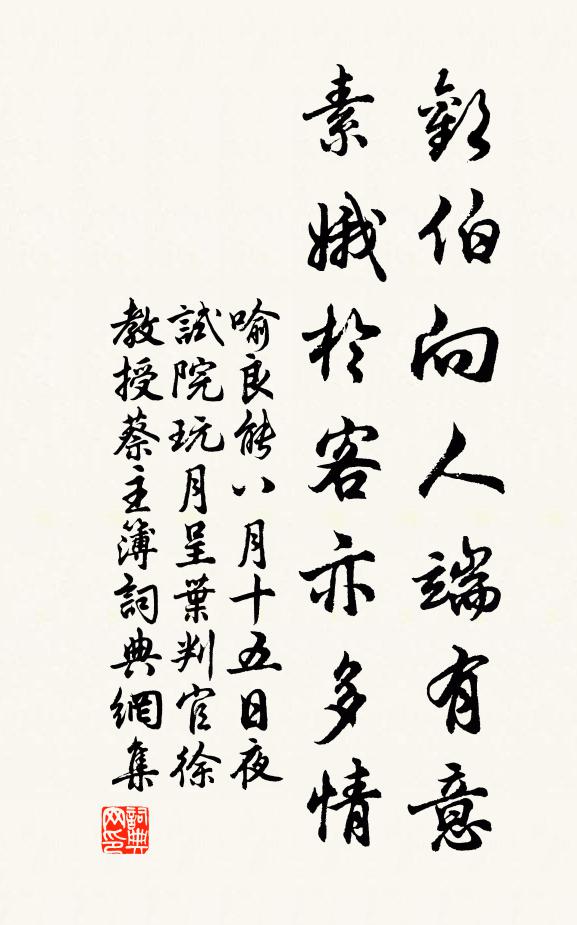 歡伯向人端有意
素娥於客亦多情
喻良能八月十五日夜
試院玩月呈葉判官徐
教授蔡主簿詞典網集
詞典网印